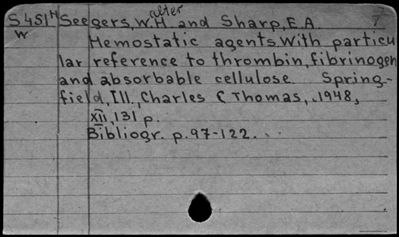 S451H Seegers, W.H. Walter and Sharp, E.A. 7
W Hemostatic agents. With particu
lar reference to thrombin, fibrinogen
and absorbable cellulose. Spring-
field, Ill., Charles C Thomas, 1948,
XII, 131 p.
Bibliogr. p. 97-122.